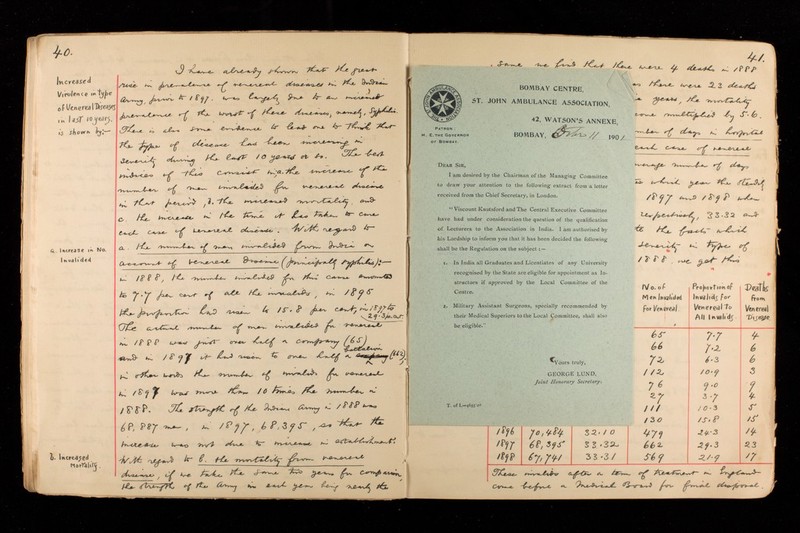 40.
Increased
Virulence in Type
of Venereal Diseases
in last 10 years,
is shown by:-
I have already shown that the great
rise in prevalence of venereal diseases in the Indian
Army, prior to 1897, was largely due to an increased
prevalence of the worst of these diseases, namely, Syphilis.
There is also some evidence to lead one to think that
the type of disease has been increasing in
severity during the last 10 years or so. The best
indices of this consist in, a. the increase of the
number of men invalided for venereal disease
in that period, b. the increased mortality, and
c. the increase in the time it has taken to cure
each case of venereal disease. With regard to
a. Increase in No.
Invalided
a. the number of men invalided from India on
account of venereal disease (principally syphilis):-
in 1888, the number invalided for this cause amounted
to 7.7 per cent of all the invalids, in 1896
the proportion had risen to 15.8 per cent, in 1897 to
29.3 per cent.
The actual number of men invalided for venereal
in 1888 was just over half a company (65)
and in 1897 it had risen to over half a battalion (662),
in other words the number of invalids for venereal
in 1897 was more than 10 times the number in
1888. The strength of the Indian Army in 1888 was
68,887 men, in 1897, 68,395, so that the
increase was not due to increase in establishment.
b. Increased
Mortality.
With regard to b. the mortality from venereal
disease, if we take the same two years for comparison,
the strength of the Army in each year being nearly the
41.
same, we find that there were 4 deaths in 1888
there were 23 deaths
years, the mortality
multiplied by 5.6.
number of days in hospital
each case of venereal
average number of days
in which year the steadily
1897 and 1898 when
respectively, 33.32 and
the facts which
severity in type of
1888, we get this
BOMBAY CENTRE,
ST. JOHN AMBULANCE ASSOCIATION,
42, WATSON'S ANNEXE,
PATRON
H. E. THE GOVERNOR
OF BOMBAY.
BOMBAY, 11 190
DEAR SIR,
I am desired by the Chairman of the Managing Committee
to draw your attention to the following extract from a letter
received from the Chief Secretary, in London.
"Viscount Knutsford and The Central Executive Committee
have had under consideration the question of the qualification
of Lecturers to the Association in India. I am authorised by
his Lordship to inform you that it has been decided the following
shall be the Regulation on the subject :—
1. In India all Graduates and Licentiates of any University
recognised by the State are eligible for appointment as In-
structors if approved by the Local Committee of the
Centre.
2. Military Assistant Surgeons, specially recommended by
their Medical Superiors to the Local Committee, shall also
be eligible."
Yours truly,
GEORGE LUND,
Joint Honorary Secretary.
No. of Men Invalided for Venereal Proportion of Invalids for Venereal to All Invalids Deaths from Venereal Disease
65 7.7 4
66 7.2 6
72 6.3 6
112 10.9 3
76 9.0 9
27 3.7 4
111 10.3 5
130 15.8 15
1896 70,484 32.10 479 24.3 14
1897 68,395 33.32 662 29.3 23
1898 67,741 33.31 569 21.9 17
These invalids after a term of treatment in England
come before a Medical Board for final disposal.